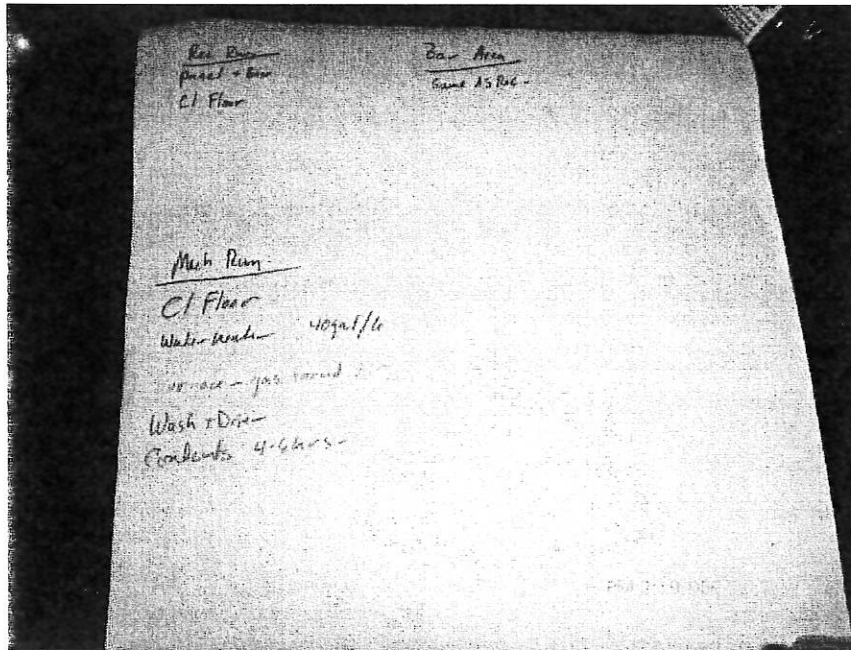 Rec Rum
panel + Base
Cl Floor
Bar Area
Same AS Rec -
Mech Rum
Cl Floor
Water heater 40 gal
furnace - gas forced
Wash + Drier
Contents 4-6 hrs -